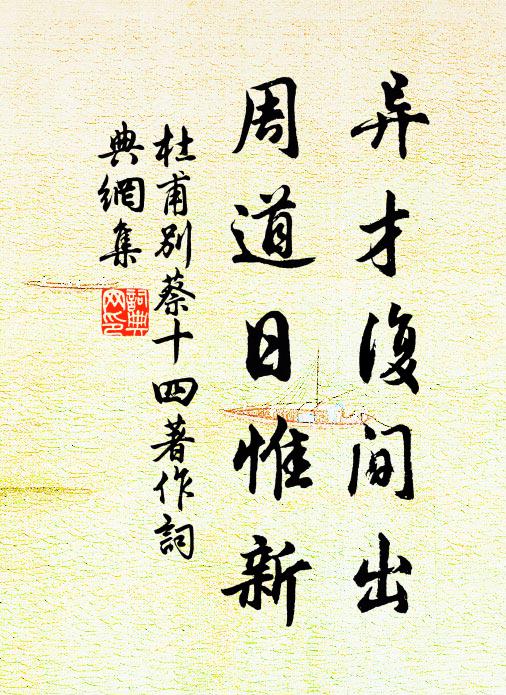 异才復间出
周道日惟新
杜甫别蔡十四著作詞
典網集
詞典
网印